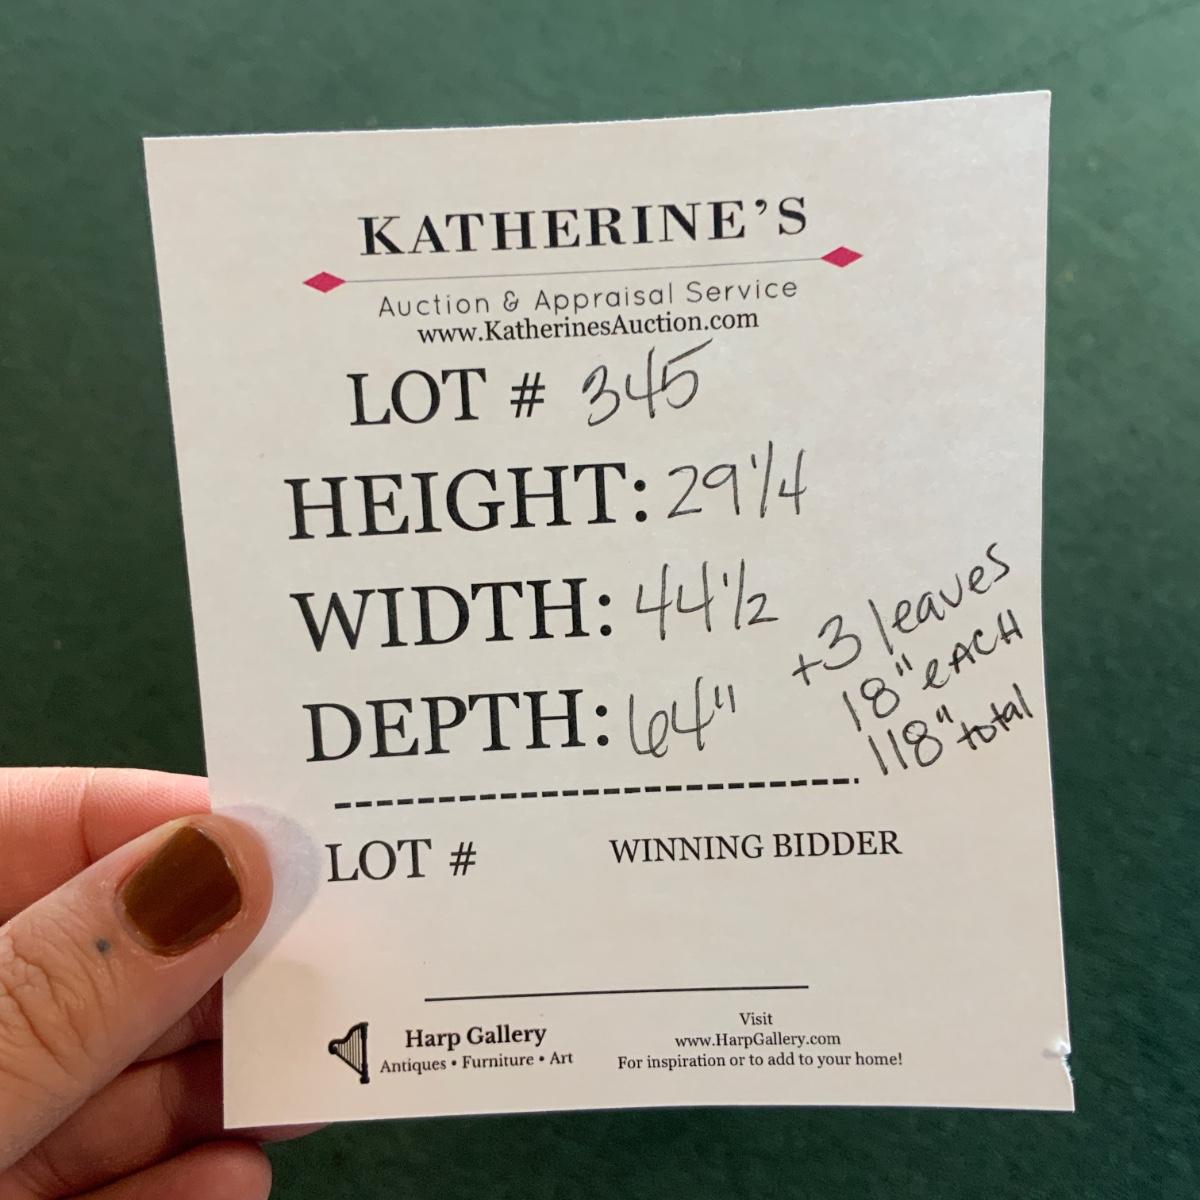 KATHERINE'S
Auction & Appraisal Service
www.KatherinesAuction.com
LOT # 345
HEIGHT: 29 1/4
WIDTH: 44 1/2
DEPTH: 64"
+3 leaves
18" eACH
118" total
LOT # WINNING BIDDER
Harp Gallery
Antiques • Furniture • Art
Visit
www.HarpGallery.com
For inspiration or to add to your home!